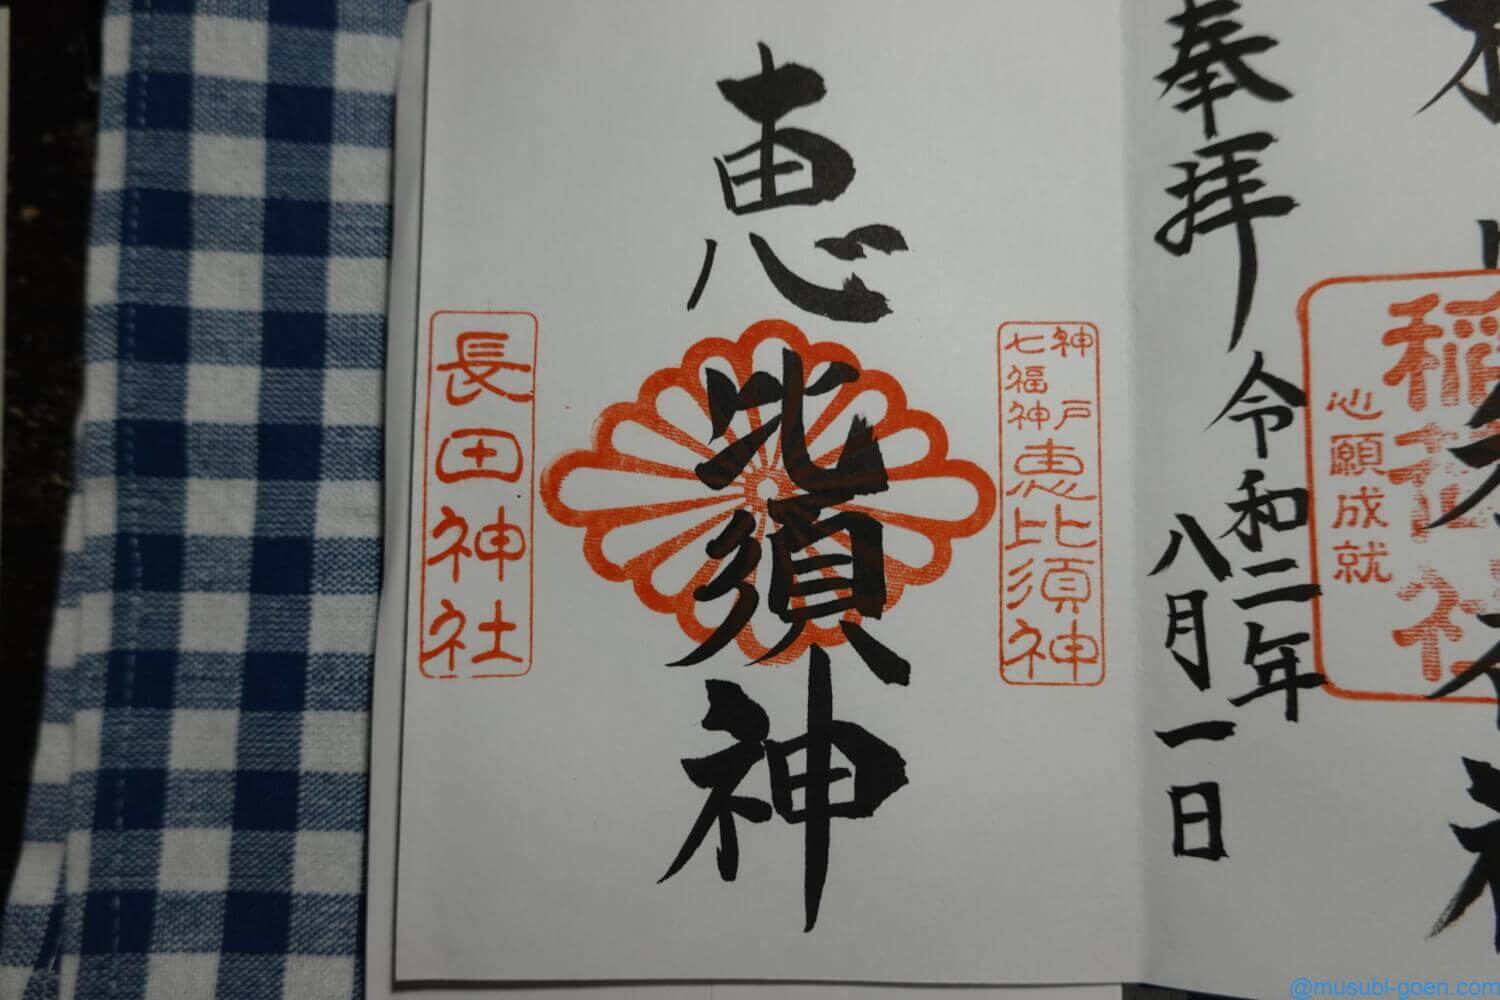 奉拝
令和二年
八月一日
稲荷社
心願成就
恵比須神
神戸
七福神
恵比須神
長田神社
@musubi-goen.com